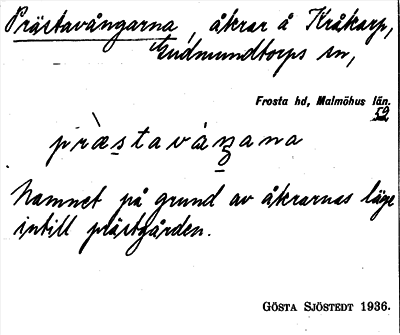 Prästavångarna, åkrar å Kråkarp,
Gudmundtorps sn,
Frosta hd, Malmöhus län.
59
præstaváŋana
Namnet på grund av åkrarnas läge
intill prästgården.
GÖSTA SJÖSTEDT 1936.